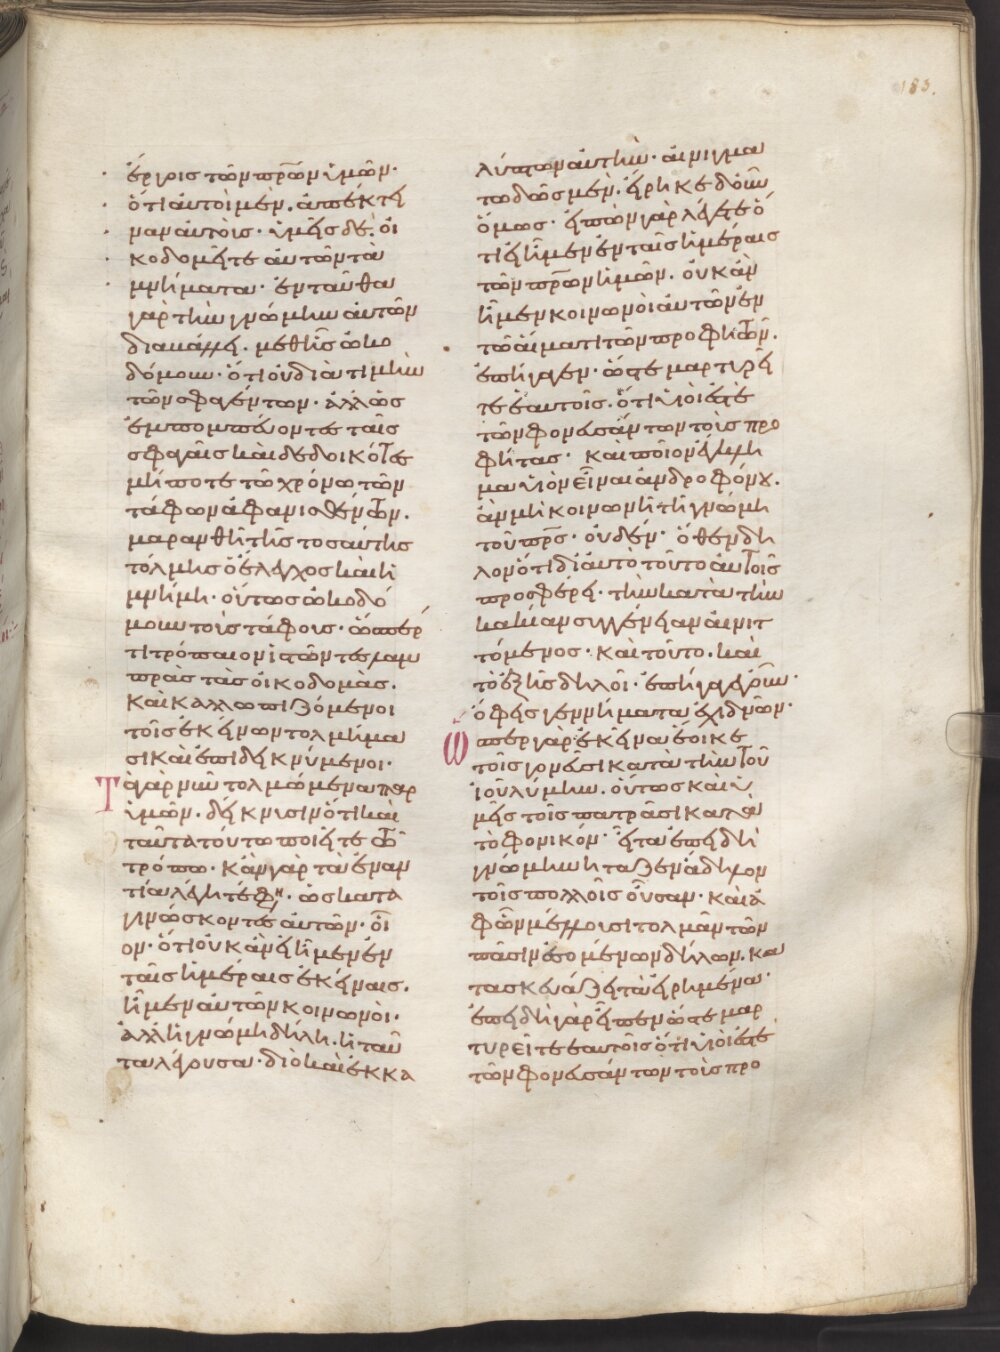 183.
ἔργοις τῶν πρ̅ων ὑμῶν·
ὅτι αὐτοὶ μὲν. ἀπέκτέ
ναν αὐτοὺς· ὑμεῖς δὲ. οἰ
κοδομεῖτε αὐτῶν τὰ
μνήματα· ἐνταῦθα
γὰρ τὴν γνώμην αὐτῶν
διαβάλλει. μεθ ἧς ὠκο
δόμουν· ὅτι οὐ διὰ τιμὴν
τῶν σφαγέντων· ἀλλ ὡς
ἐμπομπεύοντες ταῖς
σφαγαῖς καὶ δεδοικότες
μήποτε τῶ χρόνω τῶν
τάφων ἀφανισθέντων.
μαρανθῆ τῆς τοσαύτης
τόλμης ὁ ἔλεγχος καὶ ἡ
μνήμη· οὕτως ὠκοδό
μουν τοὺς τάφους· ὥσπερ
τι τρόπαιον ἱστῶντες λαμ
πρὰς τὰς οἰκοδομὰς.
καὶ καλλωπιζόμενοι
τοῖς ἐκείνων τολμήμα
σι καὶ ἐπιδεικνύμενοι·
Τὰ γὰρ νῦν τολμώμενα παρ
ὑμῶν. δείκνυσιν ὅτι καὶ
ταῦτα τούτω ποιεῖτε τῶ
τρόπω· κἂν γὰρ τὰ ἐναν
τία λέγητέ φη· ὡς κατα
γινώσκοντες αὐτῶν· οἷ
ον· ὅτι οὐκ ἂν εἰ ἦμεν ἐν
ταῖς ἡμέραις ἐκείναις.
ἦμεν αὐτῶν κοινωνοὶ·
ἀλλ ἡ γνώμη δήλη. ἡ ταῦ
τα λέγουσα· διὸ καὶ ἐκκα
λύπτων αὐτὴν· αἴνιγμα
τωδῶς μὲν. εἴρηκε δ οὖν
ὅμως· εἰπὼν γὰρ λέγετε ὅ
τι εἰ ἦμεν ἐν ταῖς ἡμέραις
τῶν πρ̅ων ἡμῶν. οὐκ ἂν
ἦμεν κοινωνοὶ αὐτῶν ἐν
τῶ αἵματι τῶν προφητῶν.
ἐπήγαγεν· ὥστε μαρτυρεῖ
τε ἑαυτοῖς. ὅτι υἱοί ἐστε
τῶν φονευσάντων τοὺς προ
φήτας· καὶ ποῖον ἔγκλη
μα υἱὸν εἶναι ἀνδροφόνου.
ἂν μὴ κοινωνῆ τῆ γνώμη
τοῦ πρ̅ς· οὐδέν· ὅθεν δῆ
λον ὅτι δι αὐτὸ τοῦτο αὐτοῖς
προσφέρει· τὴν κατὰ τὴν
κακίαν συγγένειαν αἰνιτ
τόμενος· καὶ τοῦτο. καὶ
τὸ ἑξῆς δηλοῖ· ἐπήγαγε γοῦν·
ὄφεις γεννήματα ἐχιδνῶν·
Ὥσπερ γὰρ ἐκεῖνα ἔοικε
τοῖς γονεῦσι κατὰ τὴν τοῦ
ἰοῦ λύμην. οὕτως καὶ ὑ
μεῖς τοῖς πατράσι κατὰ
τὸ φονικόν· εἶτα ἐπειδὴ
γνώμην ἤταζεν ἄδηλον
τοῖς πολλοῖς οὖσαν· καὶ ἀ
φ ὧν μέλλουσι τολμᾶν τῶν
πᾶσιν ἐσομένων δήλων. κα
τασκευάζει τὰ εἰρημένα·
ἐπειδὴ γὰρ εἶπεν ὥστε μαρ
τυρεῖτε ἑαυτοῖς ὅτι υἱοί ἐστε
τῶν φονευσάντων τοὺς προ